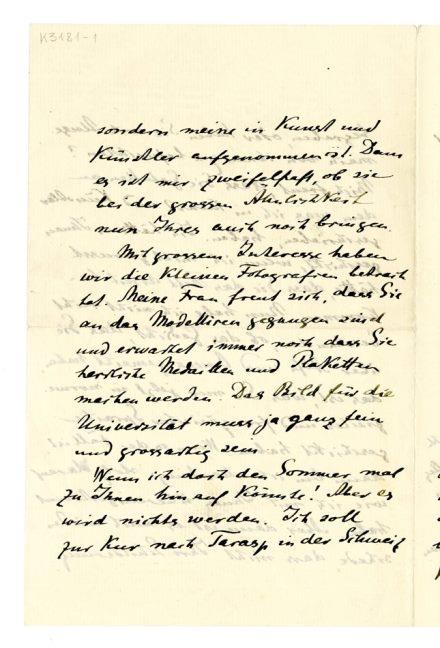 K3181-1
sondern meine in Kunst und
Künstler aufgenommen ist. Denn
es ist mir zweifelhaft, ob sie
bei der grossen Ähnlichkeit
nun Ihres auch noch bringen.
Mit grossem Interesse haben
wir die kleinen Fotografien betrach
tet. Meine Frau freut sich, dass Sie
an das Modelliren gegangen sind
und erwartet immer noch dass Sie
herrliche Medaillen und Plaketten
machen werden. Das Bild für die
Universität muss ja ganz fein
und grossartig sein
Wenn ich doch den Sommer mal
zu Ihnen hinauf könnte! Aber es
wird nichts werden. Ich soll
zur Kur nach Tarasp in der Schweiz